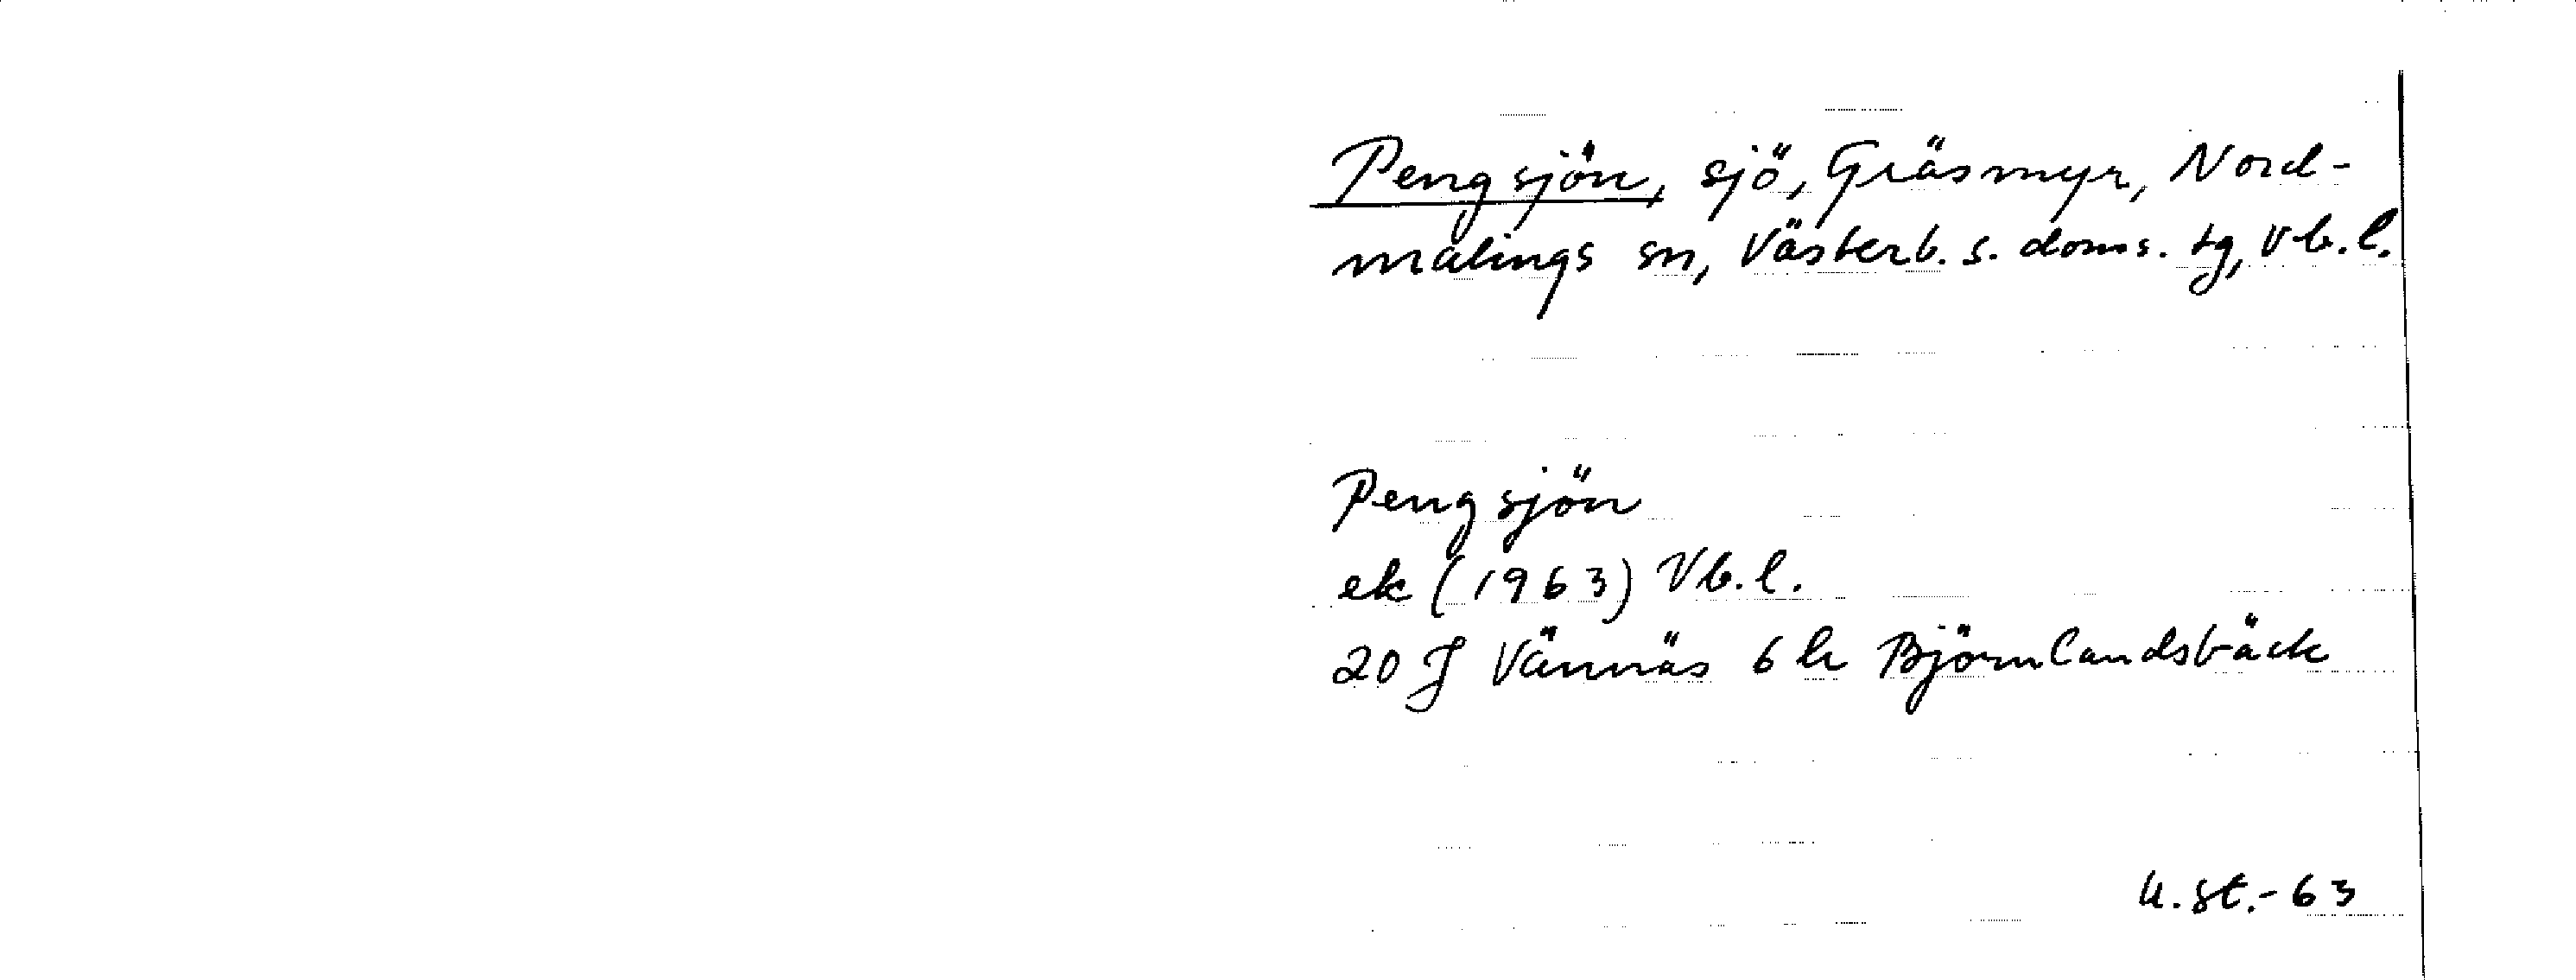 Pengsjön, sjö, Gräsmyr, Nord-
malings sn, Västerb. s. doms. tg, Vb. l.
Pengsjön
ek (1963) Vb. l.
20 J Vännäs 6 h Björnlandsbäck
U. St. - 63